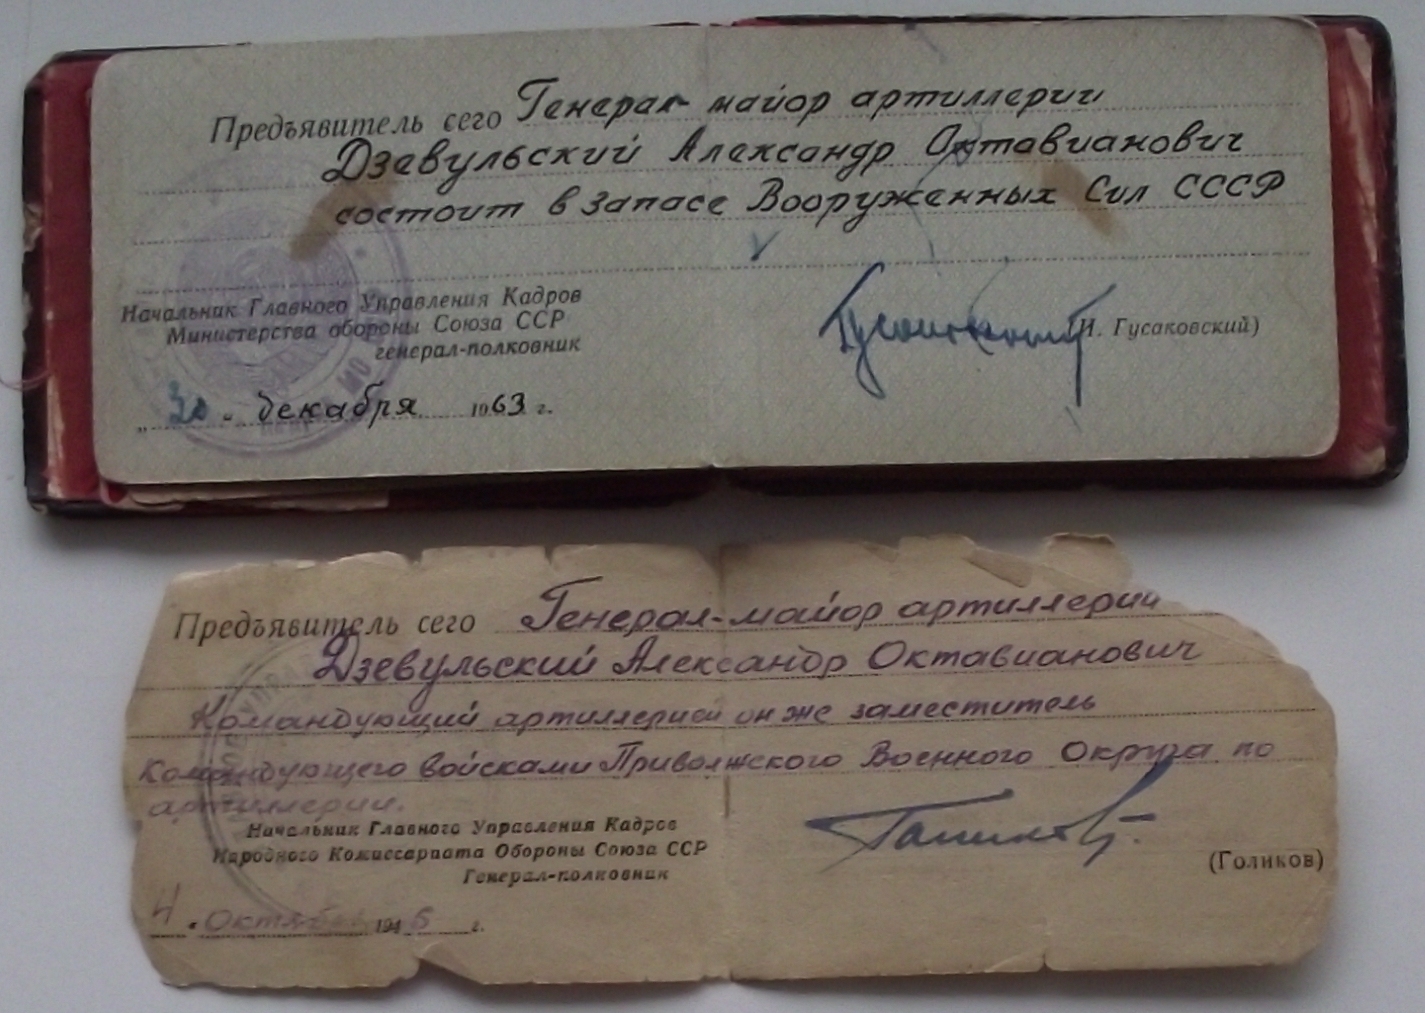 Предъявитель сего Генерал-майор артиллерии
Дзевульский Александр Октавианович
состоит в запасе Вооруженных Сил СССР
Начальник Главного Управления Кадров
Министерства обороны Союза ССР
генерал-полковник
(И. Гусаковский)
„30 " декабря 1963 г.
МО
Предъявитель сего Генерал-майор артиллерии
Дзевульский Александр Октавианович
Командующий артиллерией он же заместитель
Командующего войсками Приволжского Военного Округа по
артиллерии.
Начальник Главного Управления Кадров
Народного Комиссариата Обороны Союза ССР
Генерал-полковник
(Голиков)
4 " Октября 1945 г.